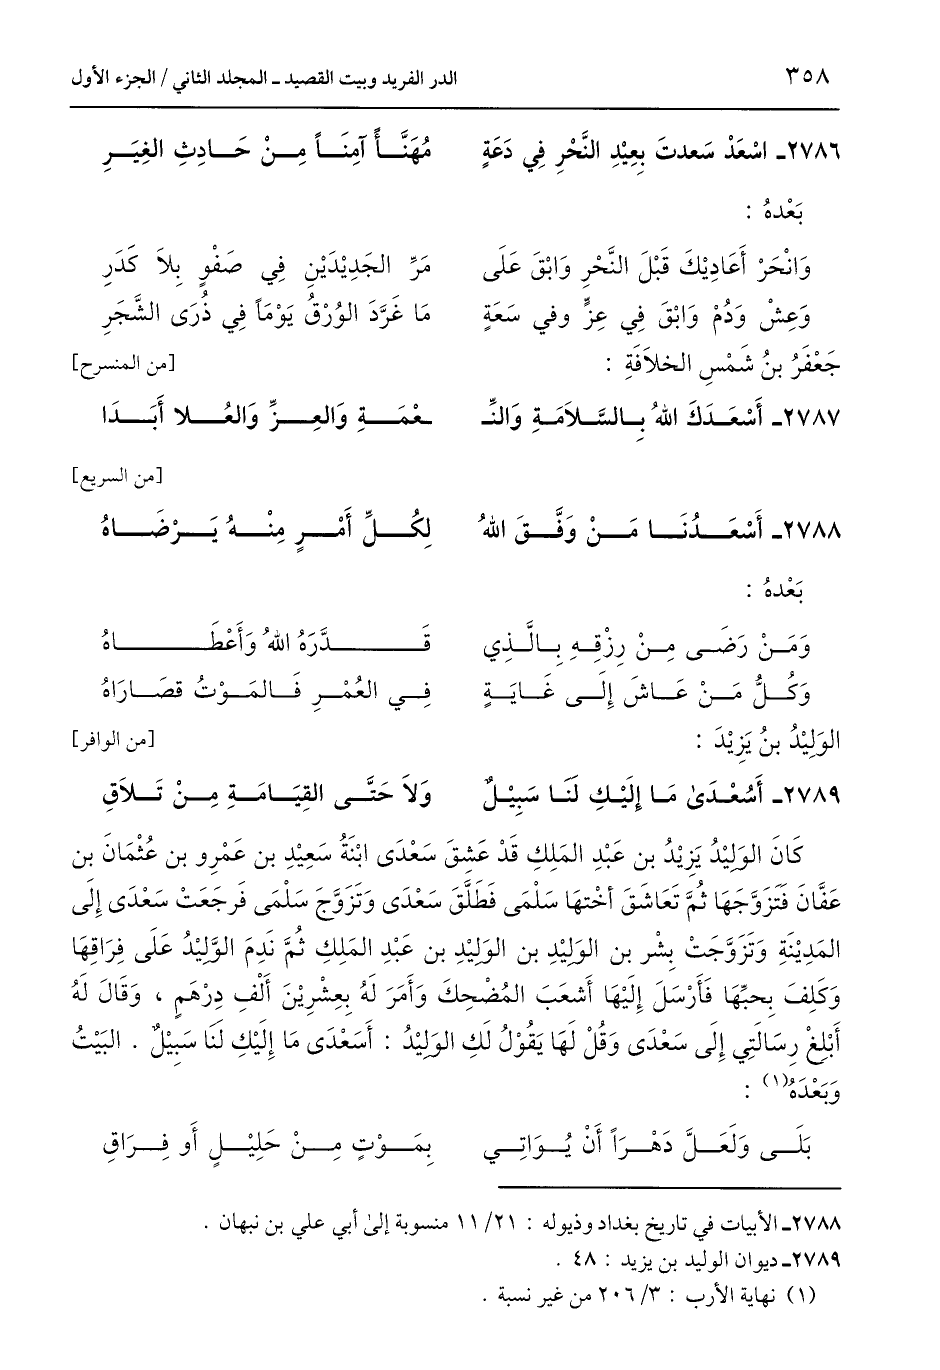 ٣٥٨ الدر الفريد وبيت القصيد ـ المجلد الثاني / الجزء الأول
٢٧٨٦ـ اسْعَدْ سَعدتَ بِعِيْدِ النَّحْرِ فِي دَعَةٍ مُهَنَّأً آمِنَاً مِنْ حَادِثِ الغِيَرِ
بَعْدهُ :
وَانْحَرْ أَعَادِيْكَ قَبْلَ النَّحْرِ وَابْقَ عَلَى مَرِّ الجَدِيْدَيْنِ فِي صَفْوٍ بِلاَ كَدَرِ
وَعِشْ وَدُمْ وَابْقَ فِي عِزٍّ وفي سَعَةٍ مَا غَرَّدَ الوُرْقُ يَوْمَاً فِي ذُرَى الشَّجَرِ
جَعْفَرُ بنُ شَمْسِ الخلاَفَةِ : [من المنسرح]
٢٧٨٧ـ أَسْعَدَكَ اللهُ بِالسَّلاَمَةِ وَالنِّـ ـعْمَةِ وَالعِزِّ وَالعُلا أَبَدَا
[من السريع]
٢٧٨٨ـ أَسْعَدُنَا مَنْ وَفَّقَ اللهُ لِكُلِّ أَمْرٍ مِنْهُ يَرْضَاهُ
بَعْدهُ :
وَمَنْ رَضَى مِنْ رِزْقِهِ بِالَّذِي قَدَّرَهُ اللهُ وَأَعْطَاهُ
وَكُلُّ مَنْ عَاشَ إِلَى غَايَةٍ فِي العُمْرِ فَالمَوْتُ قصَارَاهُ
الوَلِيْدُ بنُ يَزِيْدَ : [من الوافر]
٢٧٨٩ـ أَسُعْدَىٰ مَا إِلَيْكِ لَنَا سَبِيْلٌ وَلاَ حَتَّى القِيَامَةِ مِنْ تَلاَقِ
كَانَ الوَلِيْدُ يَزِيْدُ بن عَبْدِ المَلِكِ قَدْ عَشِقَ سَعْدَى ابْنَةُ سَعِيْدِ بن عَمْرِو بن عُثْمَانَ بن
عَفَّانَ فَتَزَوَّجَهَا ثُمَّ تَعَاشَقَ أخْتهَا سَلْمَى فَطَلَّقَ سَعْدَى وَتَزَوَّجَ سَلْمَى فَرجَعَتْ سَعْدَى إِلَى
المَدِيْنَةِ وَتَزَوَّجَتْ بِشْرِ بن الوَلِيْدِ بن الوَلِيْدِ بن عَبْدِ المَلِكِ ثُمَّ نَدِمَ الوَّلِيْدُ عَلَى فِرَاقِهَا
وَكلِفَ بِحبِّهَا فَأَرْسَلَ إِلَيْهَا أَشْعَبَ المُضْحِكَ وَأَمَرَ لَهُ بِعشْرِيْنَ أَلْفِ دِرْهَمٍ ، وَقَالَ لَهُ
أَبْلِغْ رِسَالَتِي إِلَى سَعْدَى وَقُلْ لَهَا يَقُوْلُ لَكِ الوَلِيْدُ : أَسَعْدَى مَا إِلَيْكِ لَنَا سَبِيْلٌ . البَيْتُ
وَبَعْدَهُ(١) :
بَلَى وَلَعَلَّ دَهْرَاً أَنْ يُوَاتِي بِمَوْتٍ مِنْ حَلِيْلٍ أَو فِرَاقِ
٢٧٨٨ـ الأبيات في تاريخ بغداد وذيوله : ١١/٢١ منسوبة إلىٰ أبي علي بن نبهان .
٢٧٨٩ـ ديوان الوليد بن يزيد : ٤٨ .
(١) نهاية الأرب : ٢٠٦/٣ من غير نسبة .